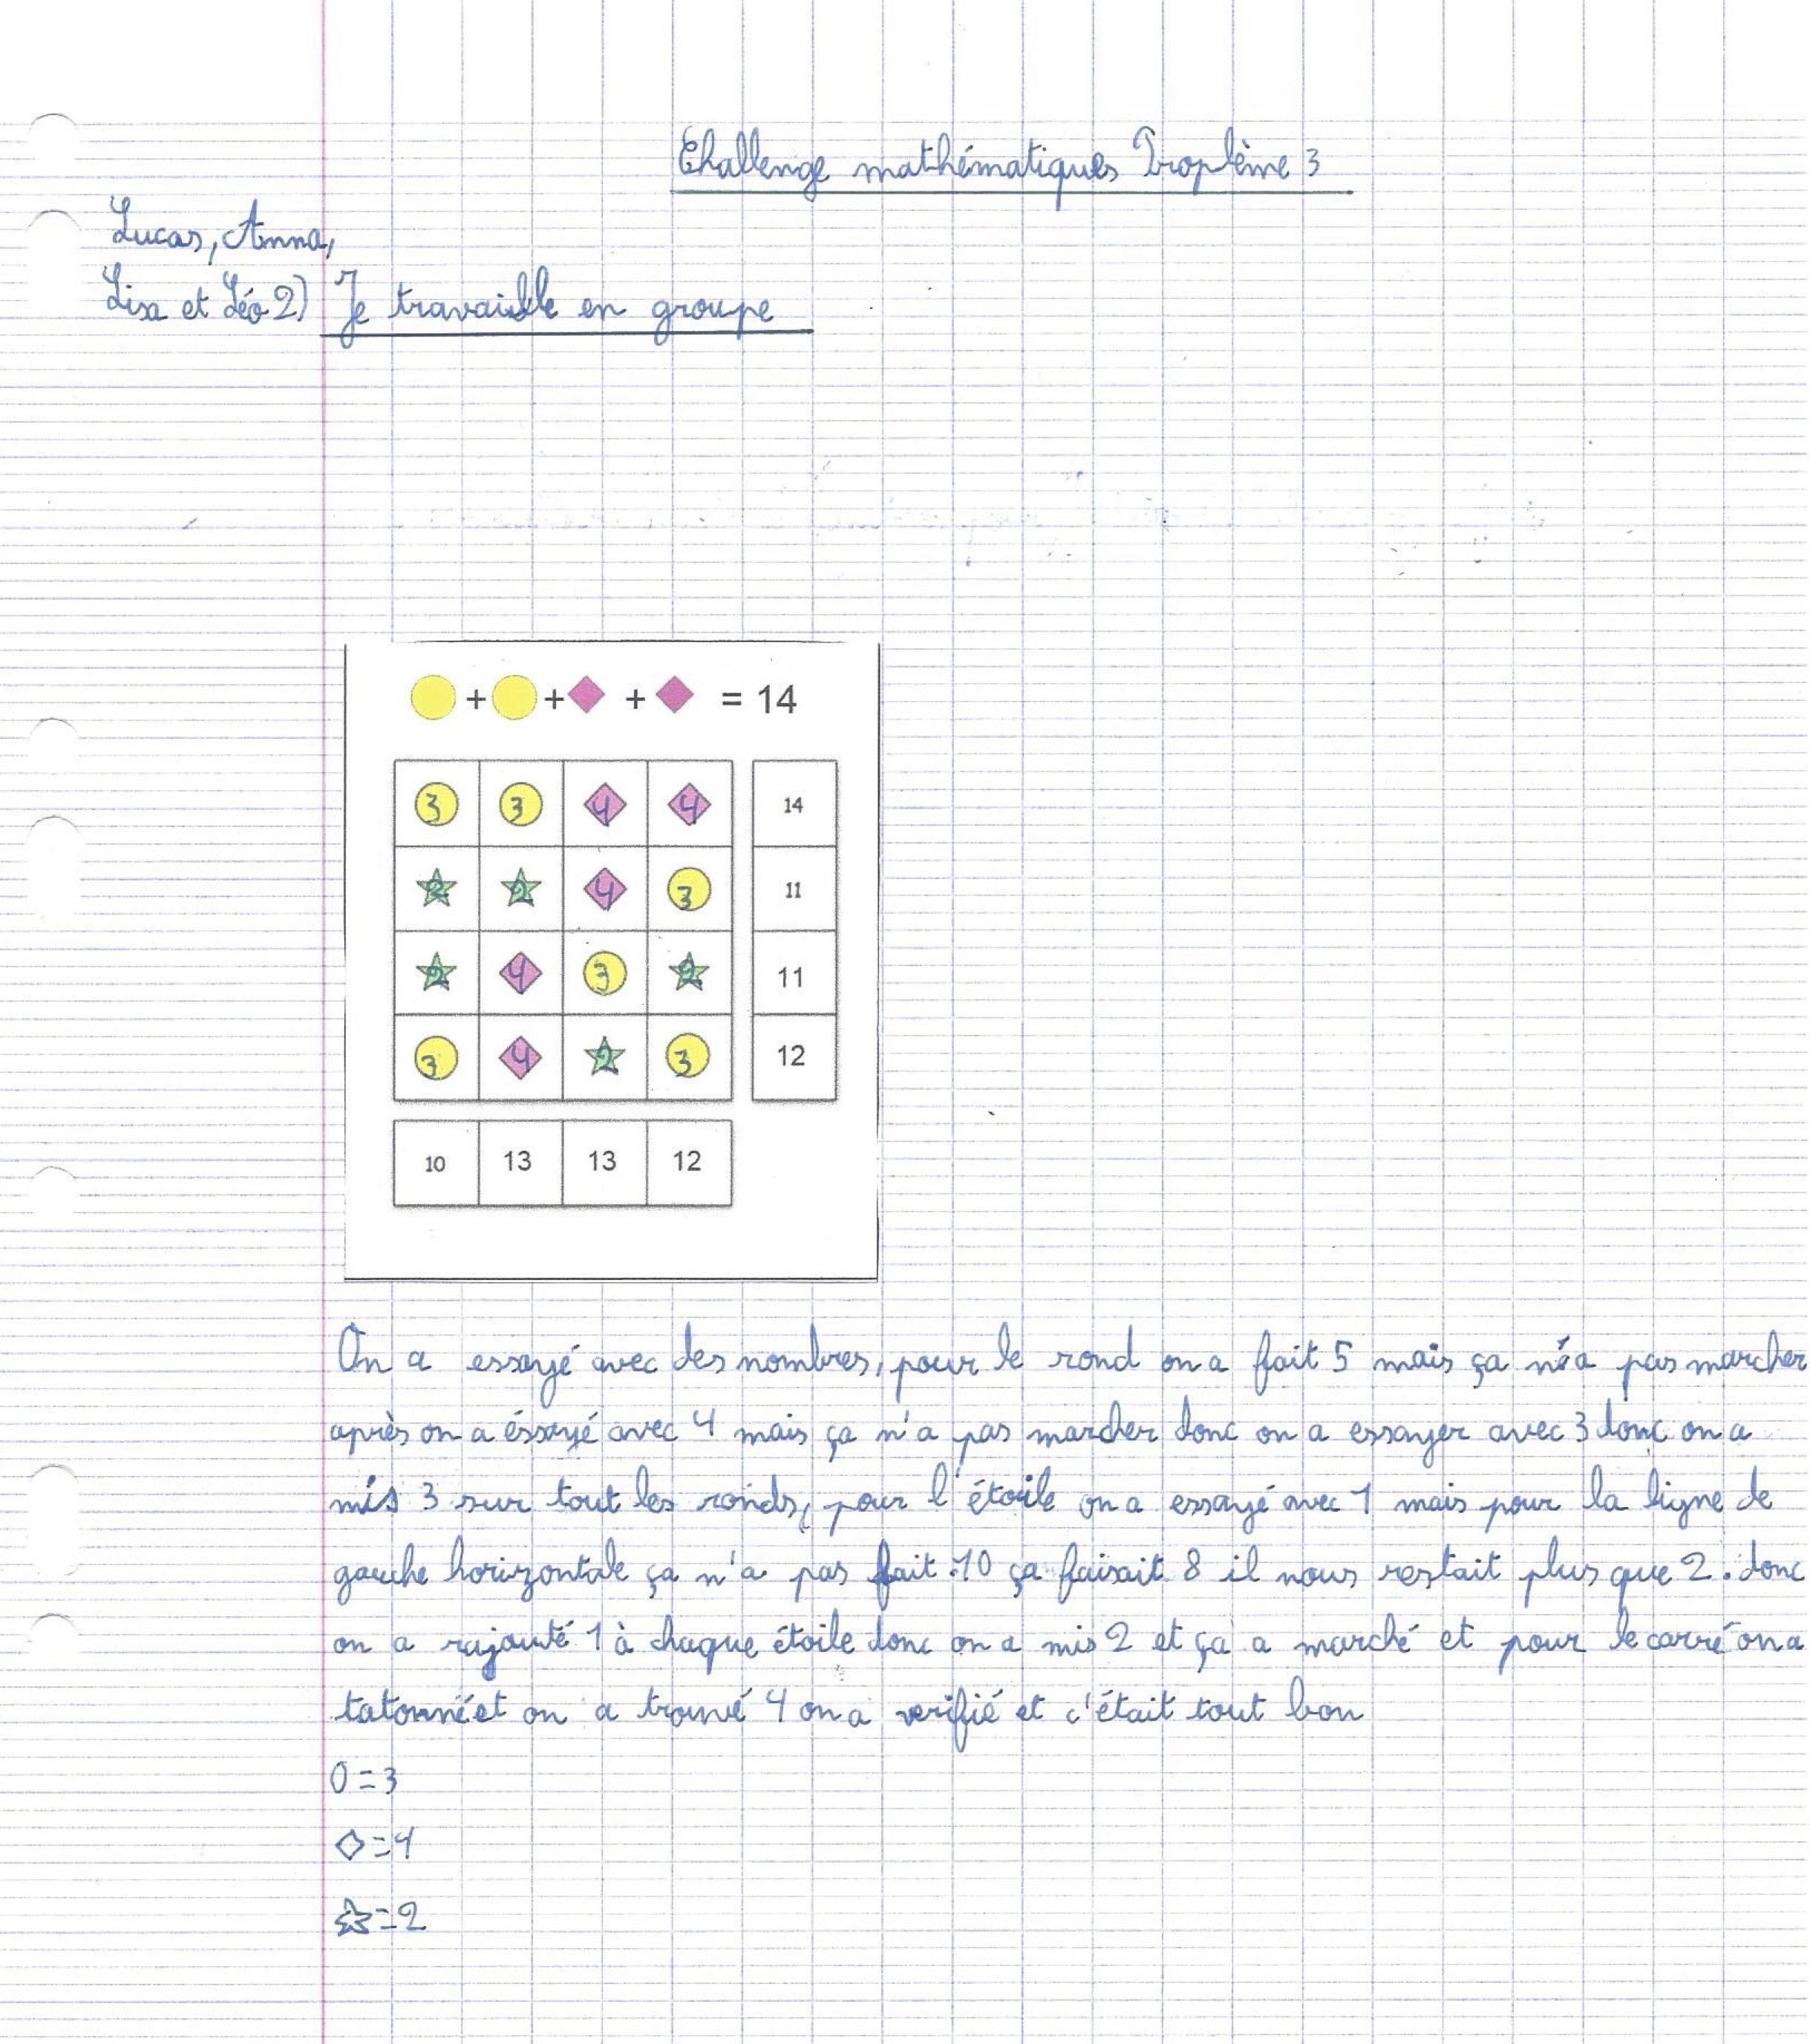 Challenge mathématiques Proplème 3
Lucas, Anna,
Lisa et Léo 2) Je travaille en groupe
+ + + = 14
3 3 4 4 14
2 2 4 3 11
2 4 3 2 11
3 4 2 3 12
10 13 13 12
On a essayé avec des nombres, pour le rond on a fait 5 mais ça n'a pas marcher
après on a éssayé avec 4 mais ça n'a pas marcher donc on a essayer avec 3 donc on a
mis 3 sur tout les ronds, pour l'étoile on a essayé avec 1 mais pour la ligne de
gauche horizontale ça n'a pas fait 10 ça faisait 8 il nous restait plus que 2. donc
on a rajouté 1 à chaque étoile donc on a mis 2 et ça a marché et pour le carré on a
tatonné et on a trouvé 4 on a verifié et c'était tout bon
O=3
◇=4
☆=2